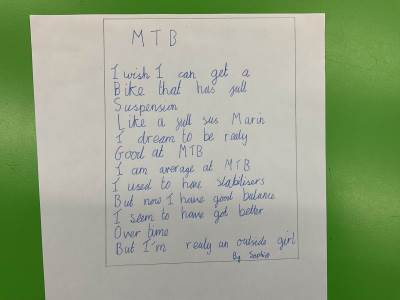 MTB
I wish I can get a
Bike that has full
Suspension
Like a full sus Marin
I dream to be realy
Good at MTB
I am average at MTB
I used to have stabilisers
But now I have good balance
I seem to have got better
Over time
But I'm realy an outside girl
By Sophia